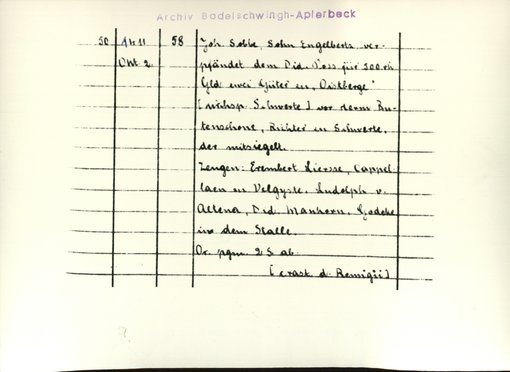 Archiv Bodelschwingh-Aplerbeck
50 1411 58 Joh. Sobbe, Sohn Engelberts ver-
Okt 2. pfändet dem Did. Voss für 300 rh
Gld zwei Güter in „Oistberge"
[Kirchsp. Schwerte] vor Herm. Ru-
tenschone, Richter in Schwerte,
der mitsiegelt.
Zeugen: Erembert Kersse, Cappel-
laen in Velgyste, Ludolph v.
Altena, Did. Manhorn, Godeke
in dem Stalle.
Or. pgm. 2 S. ab.
[crast. d. Remigii]